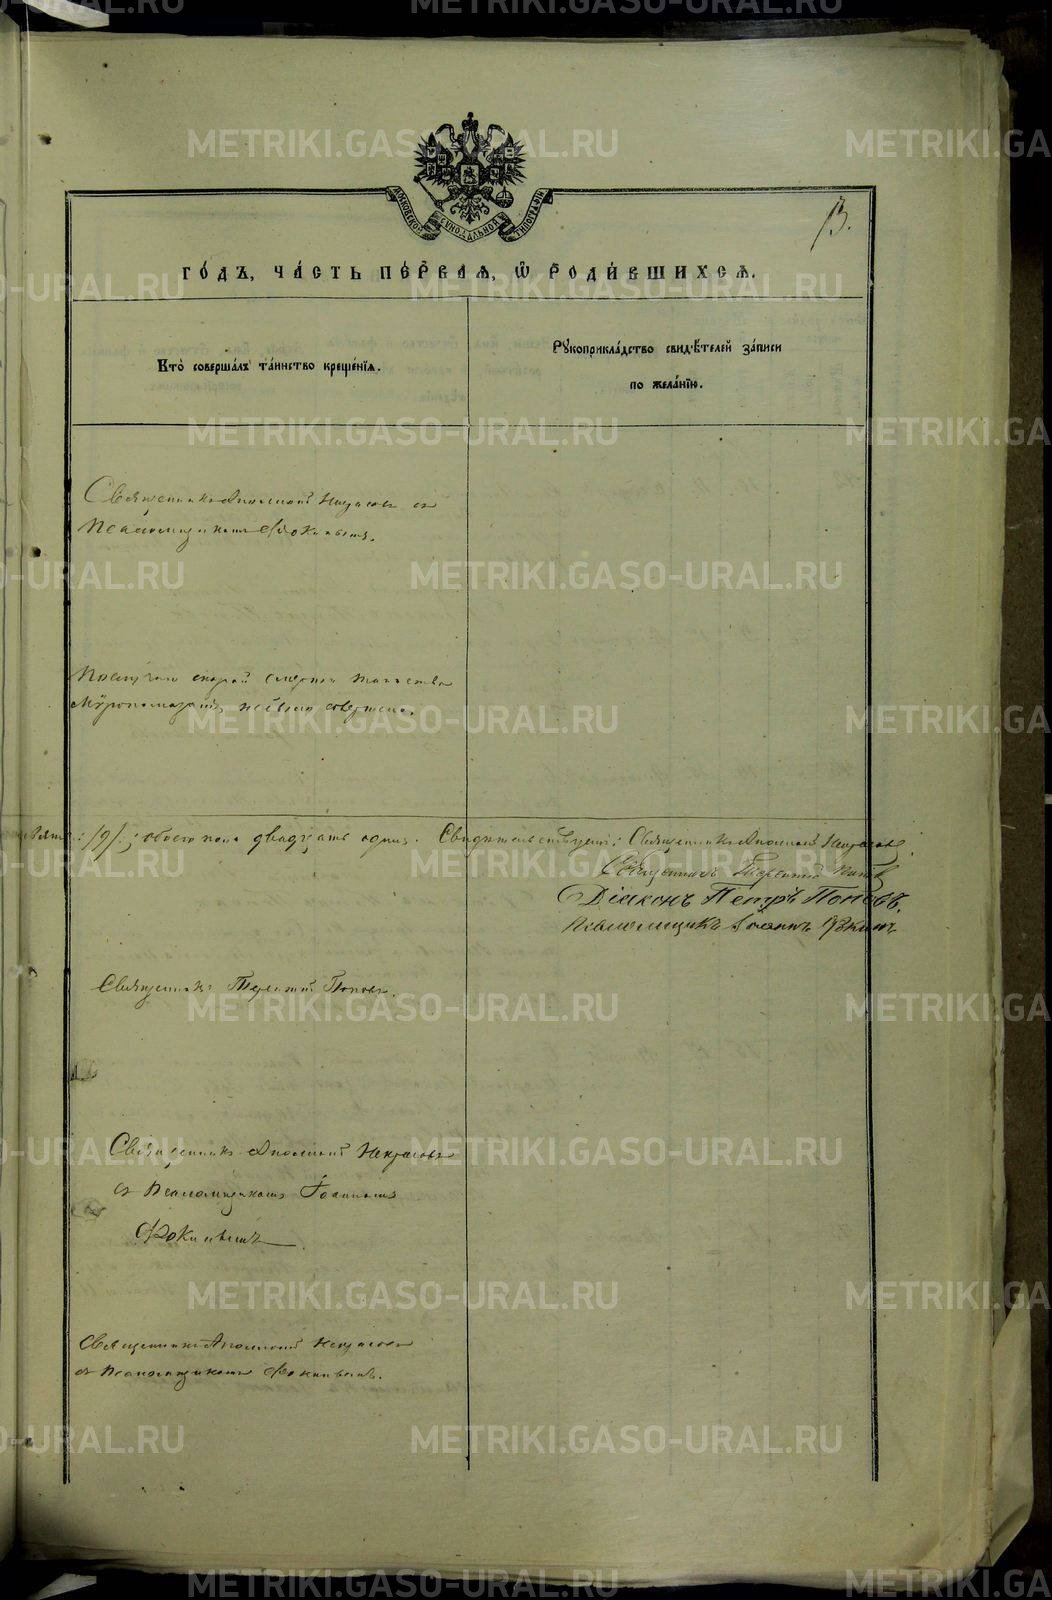 METRIKI.GASO-URAL.RU
МОСКОВСКОЙ СѴНОДАЛЬНОЙ ТИПОГРАФІИ
13.
ГО́ДЪ, ЧА́СТЬ ПЕ́РВАЯ, Ѡ РОДИ́ВШИХСЯ.
Кто̀ соверша́лъ та́инство креще́нїѧ.
Рꙋкоприкла́дство свидѣ́телей за́писи
по жела́нїю.
Священникъ Аполлоній Некрасовъ съ
Псаломщикомъ Фокинымъ.
По случаю скорой смерти таинство
Мѵропомазанія не было совершено.
/9/.; обоего пола двадцать одинъ. Свидѣтельствуемъ: Священникъ Аполлоній Некрасовъ.
Священникъ Терентій Поповъ
Діаконъ Петръ Поповъ.
Псаломщикъ Іоаннъ Фокинъ
Священникъ Терентій Поповъ.
Священникъ Аполлоній Некрасовъ
съ Псаломщикомъ Іоанномъ
Фокинымъ.
Священникъ Аполлоній Некрасовъ
съ Псаломщикомъ Фокинымъ.